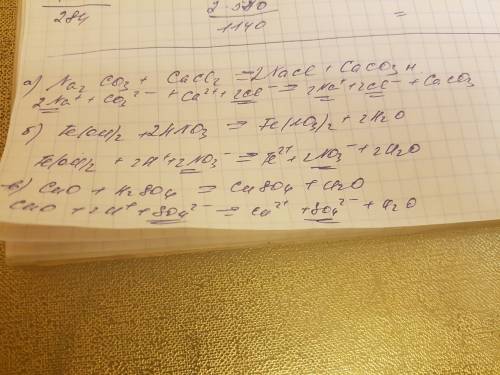 284
2 · 520
1140
=
а) Na2 CO3 + CaCl2 = 2NaCl + CaCO3 н.
2Na⁺ + CO3²⁻ + Ca²⁺ + 2Cl⁻ = 2Na⁺ + 2Cl⁻ + CaCO3
б) Fe(OH)2 + 2HNO3 = Fe(NO3)2 + 2H2O
Fe(OH)2 + 2H⁺ + 2NO3⁻ = Fe²⁺ + 2NO3⁻ + 2H2O
в) CuO + H2SO4 = CuSO4 + H2O
CuO + 2H⁺ + SO4²⁻ = Cu²⁺ + SO4²⁻ + H2O